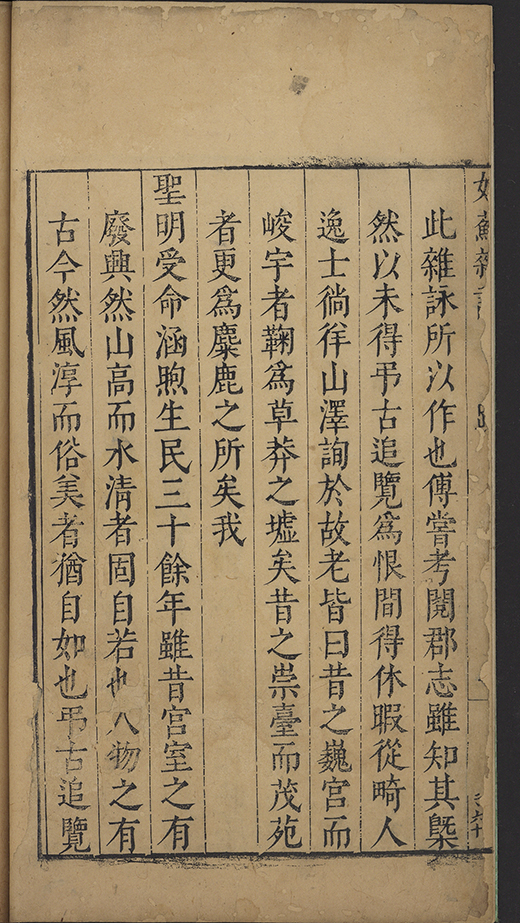 姑蘇雜詠
此雜詠所以作也傅嘗考閱郡志雖知其槩
然以未得弔古追覽為恨間得休暇從畸人
逸士徜徉山澤詢於故老皆曰昔之巍宮而
峻宇者鞠為草莽之墟矣昔之崇臺而茂苑
者更為麋鹿之所矣我
聖明受命涵煦生民三十餘年雖昔宮室之有
廢興然山高而水清者固自若也人物之有
古今然風淳而俗美者猶自如也弔古追覽